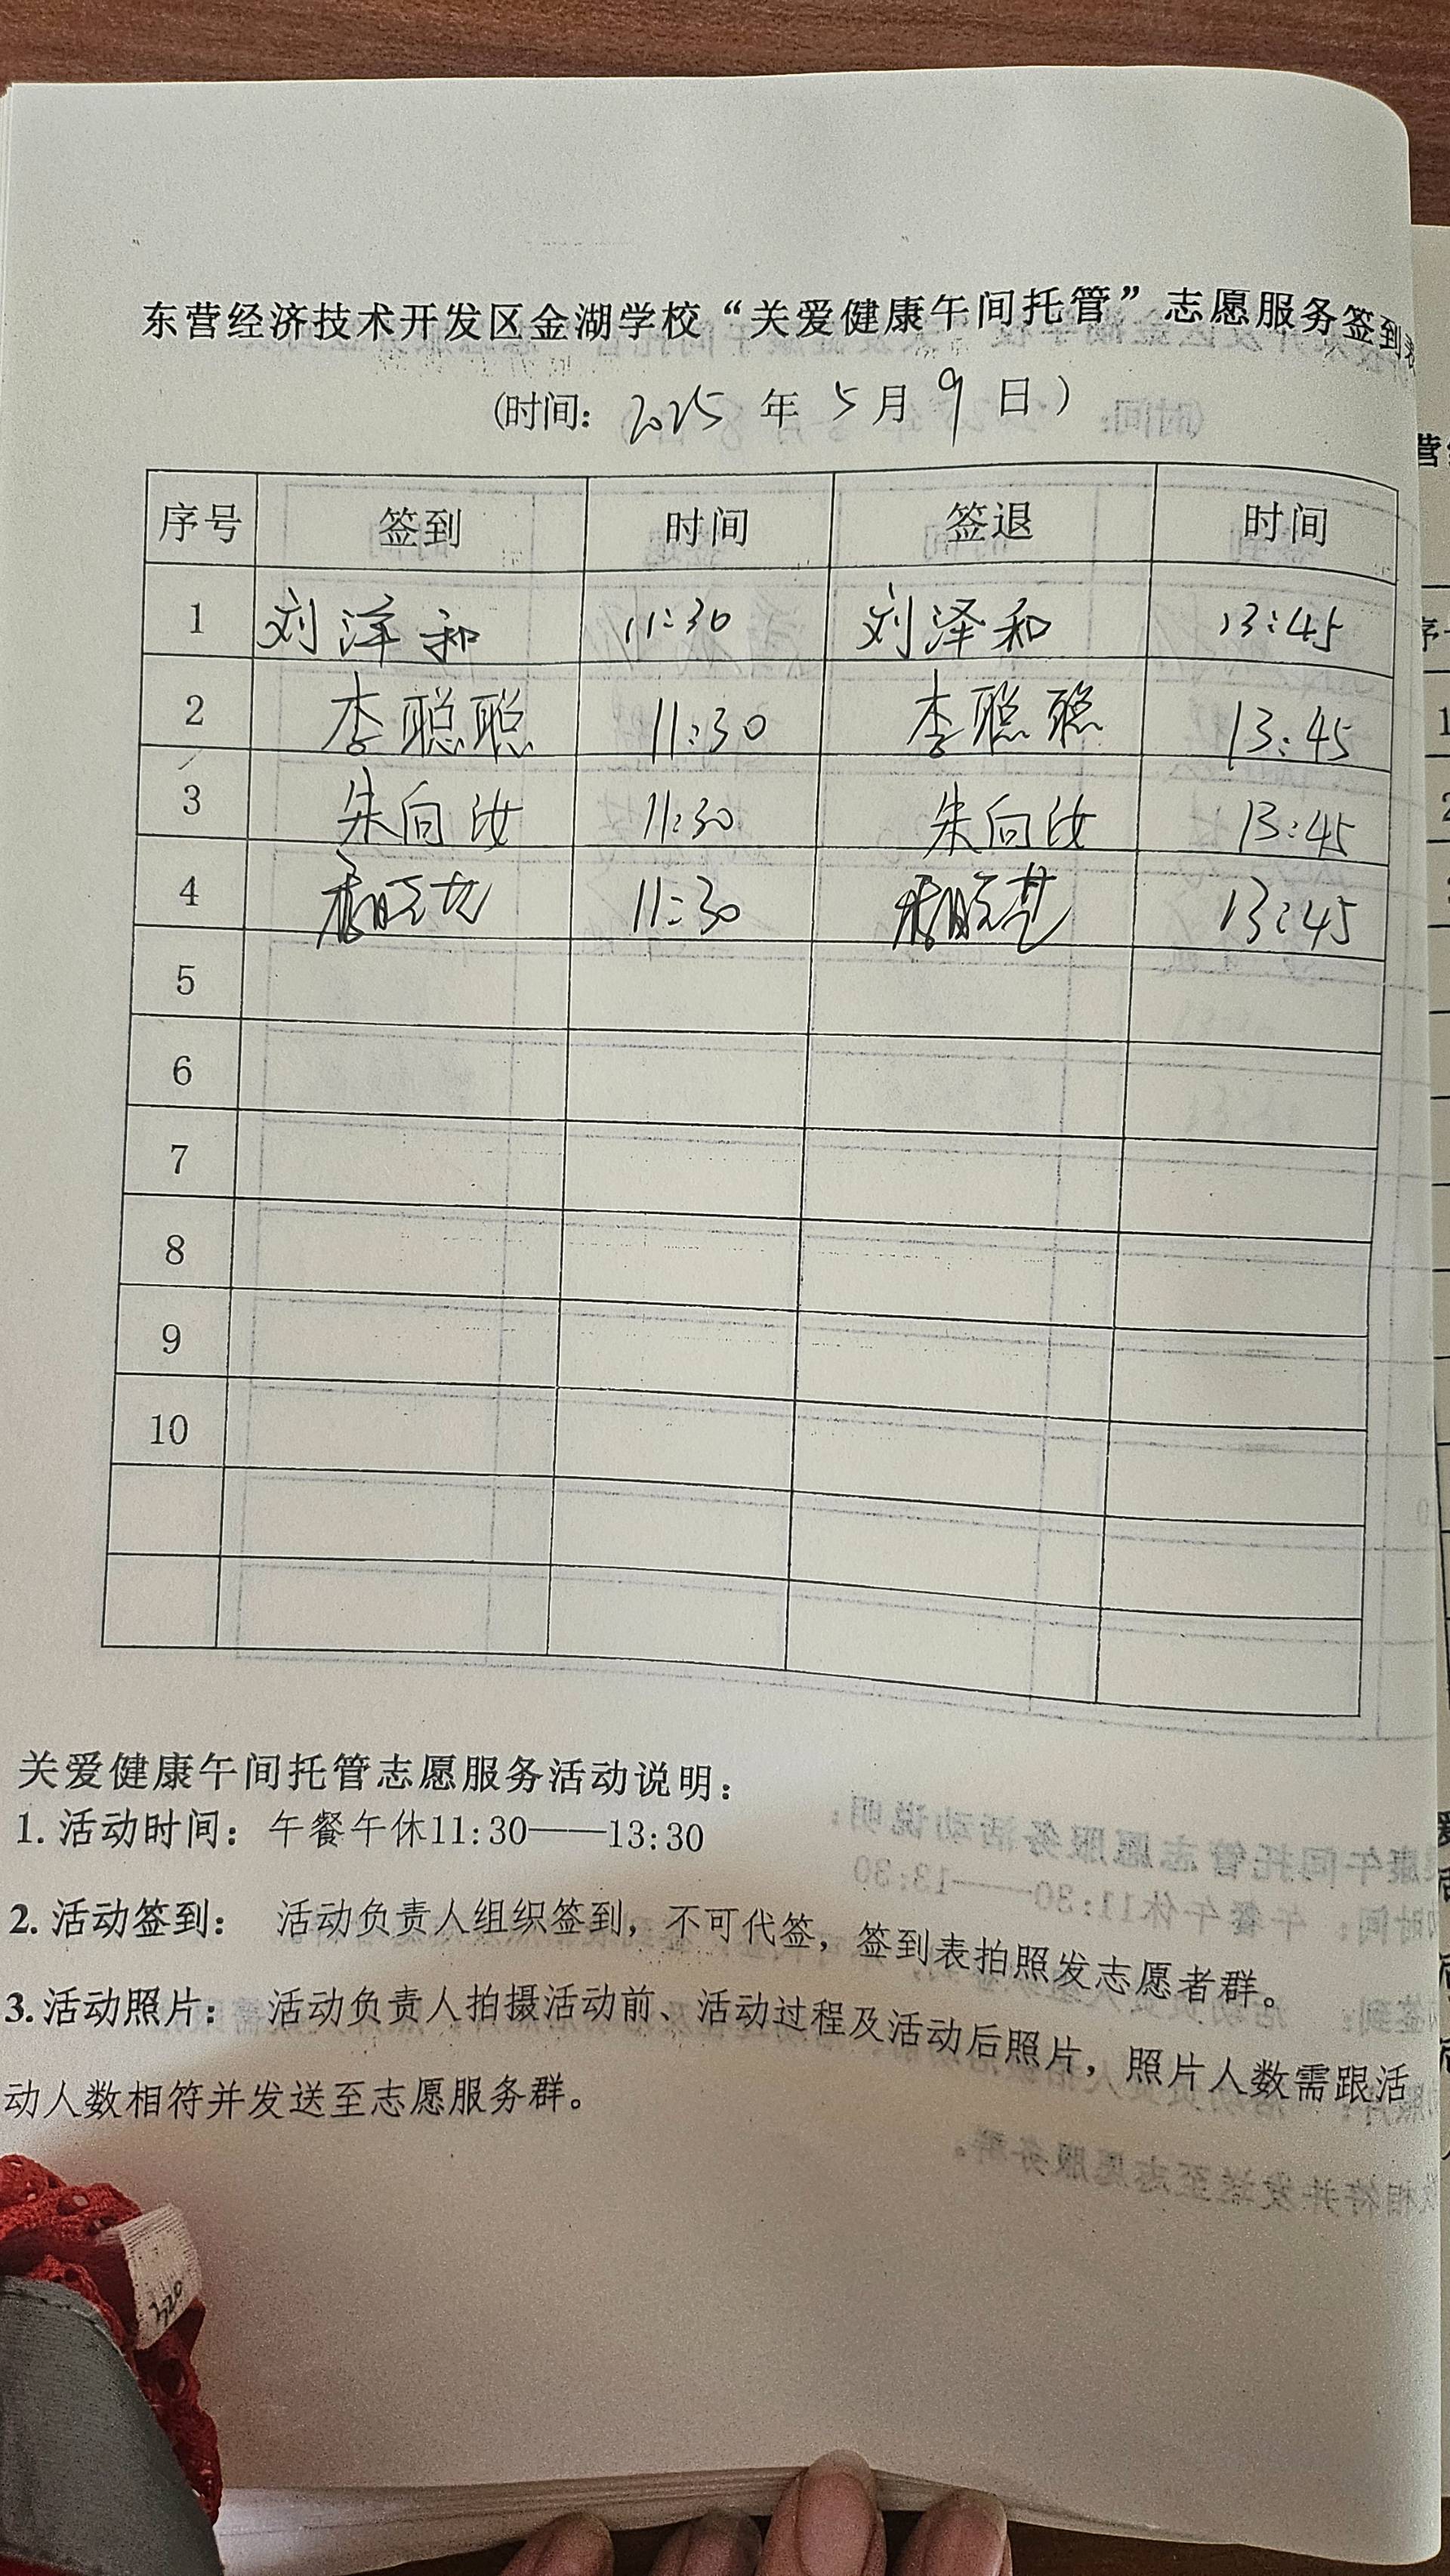 东营经济技术开发区金湖学校“关爱健康午间托管”志愿服务签到表
(时间: 2025 年 5 月 9 日)
序号 签到 时间 签退 时间
1 刘泽和 11:30 刘泽和 13:45
2 李聪聪 11:30 李聪聪 13:45
3 朱向汝 11:30 朱向汝 13:45
4 11:30 13:45
5
6
7
8
9
10
关爱健康午间托管志愿服务活动说明:
1. 活动时间: 午餐午休11:30——13:30
2. 活动签到: 活动负责人组织签到, 不可代签, 签到表拍照发志愿者群。
3. 活动照片: 活动负责人拍摄活动前、活动过程及活动后照片, 照片人数需跟活
动人数相符并发送至志愿服务群。
320